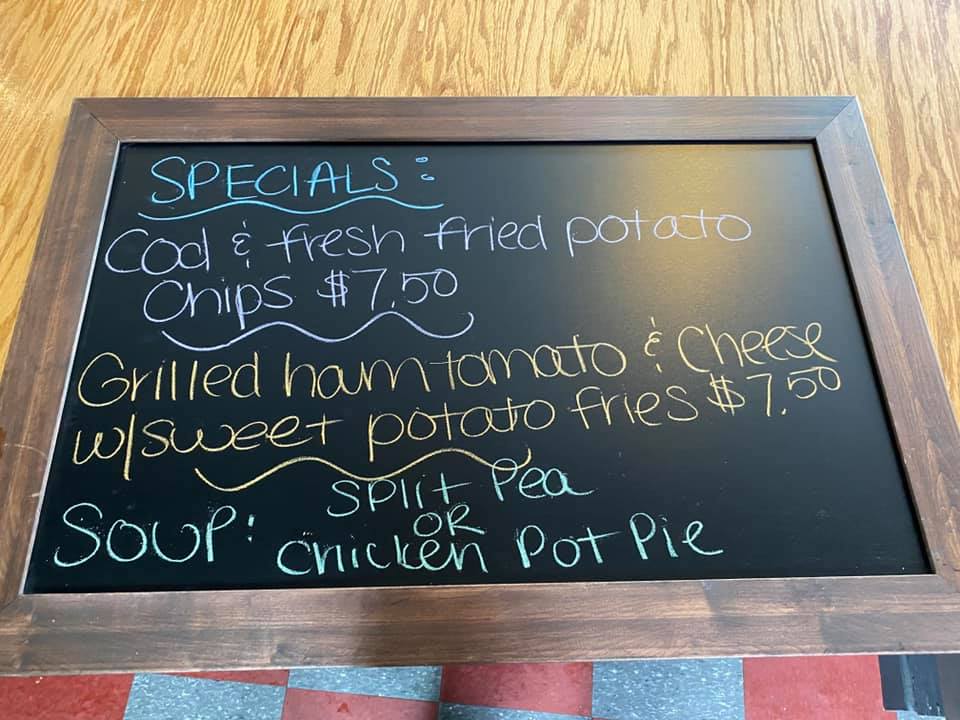 SPECIALS:
Cod & fresh fried potato
Chips $7.50
Grilled ham tomato & Cheese
w/sweet potato fries $7.50
Split Pea
SOUP: OR
Chicken Pot Pie